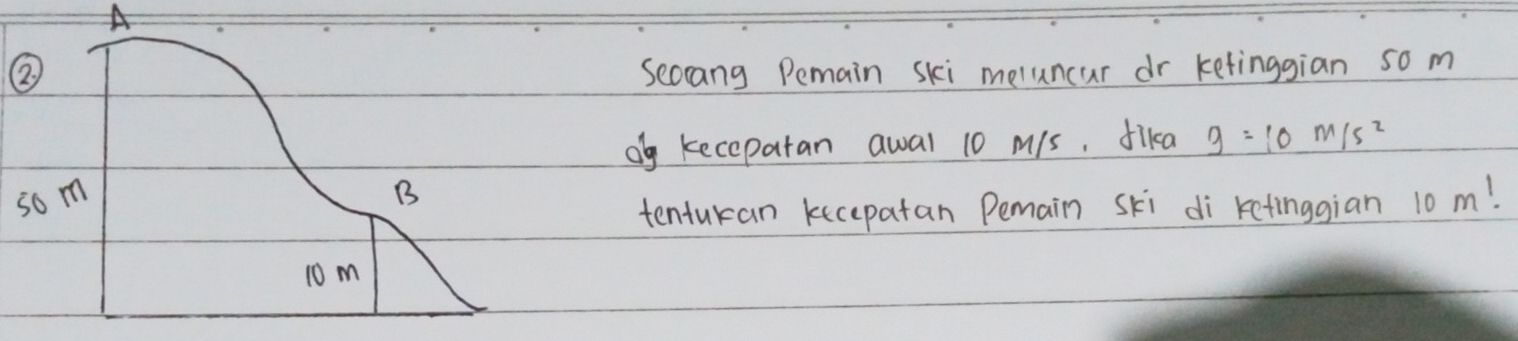 A
②
Seorang Pemain ski meluncur dr ketinggian 50 m
dg kecepatan awal 10 m/s. Jika g = 10 m/s²
50 m
B
tentukan kecepatan Pemain ski di ketinggian 10 m!
10 m